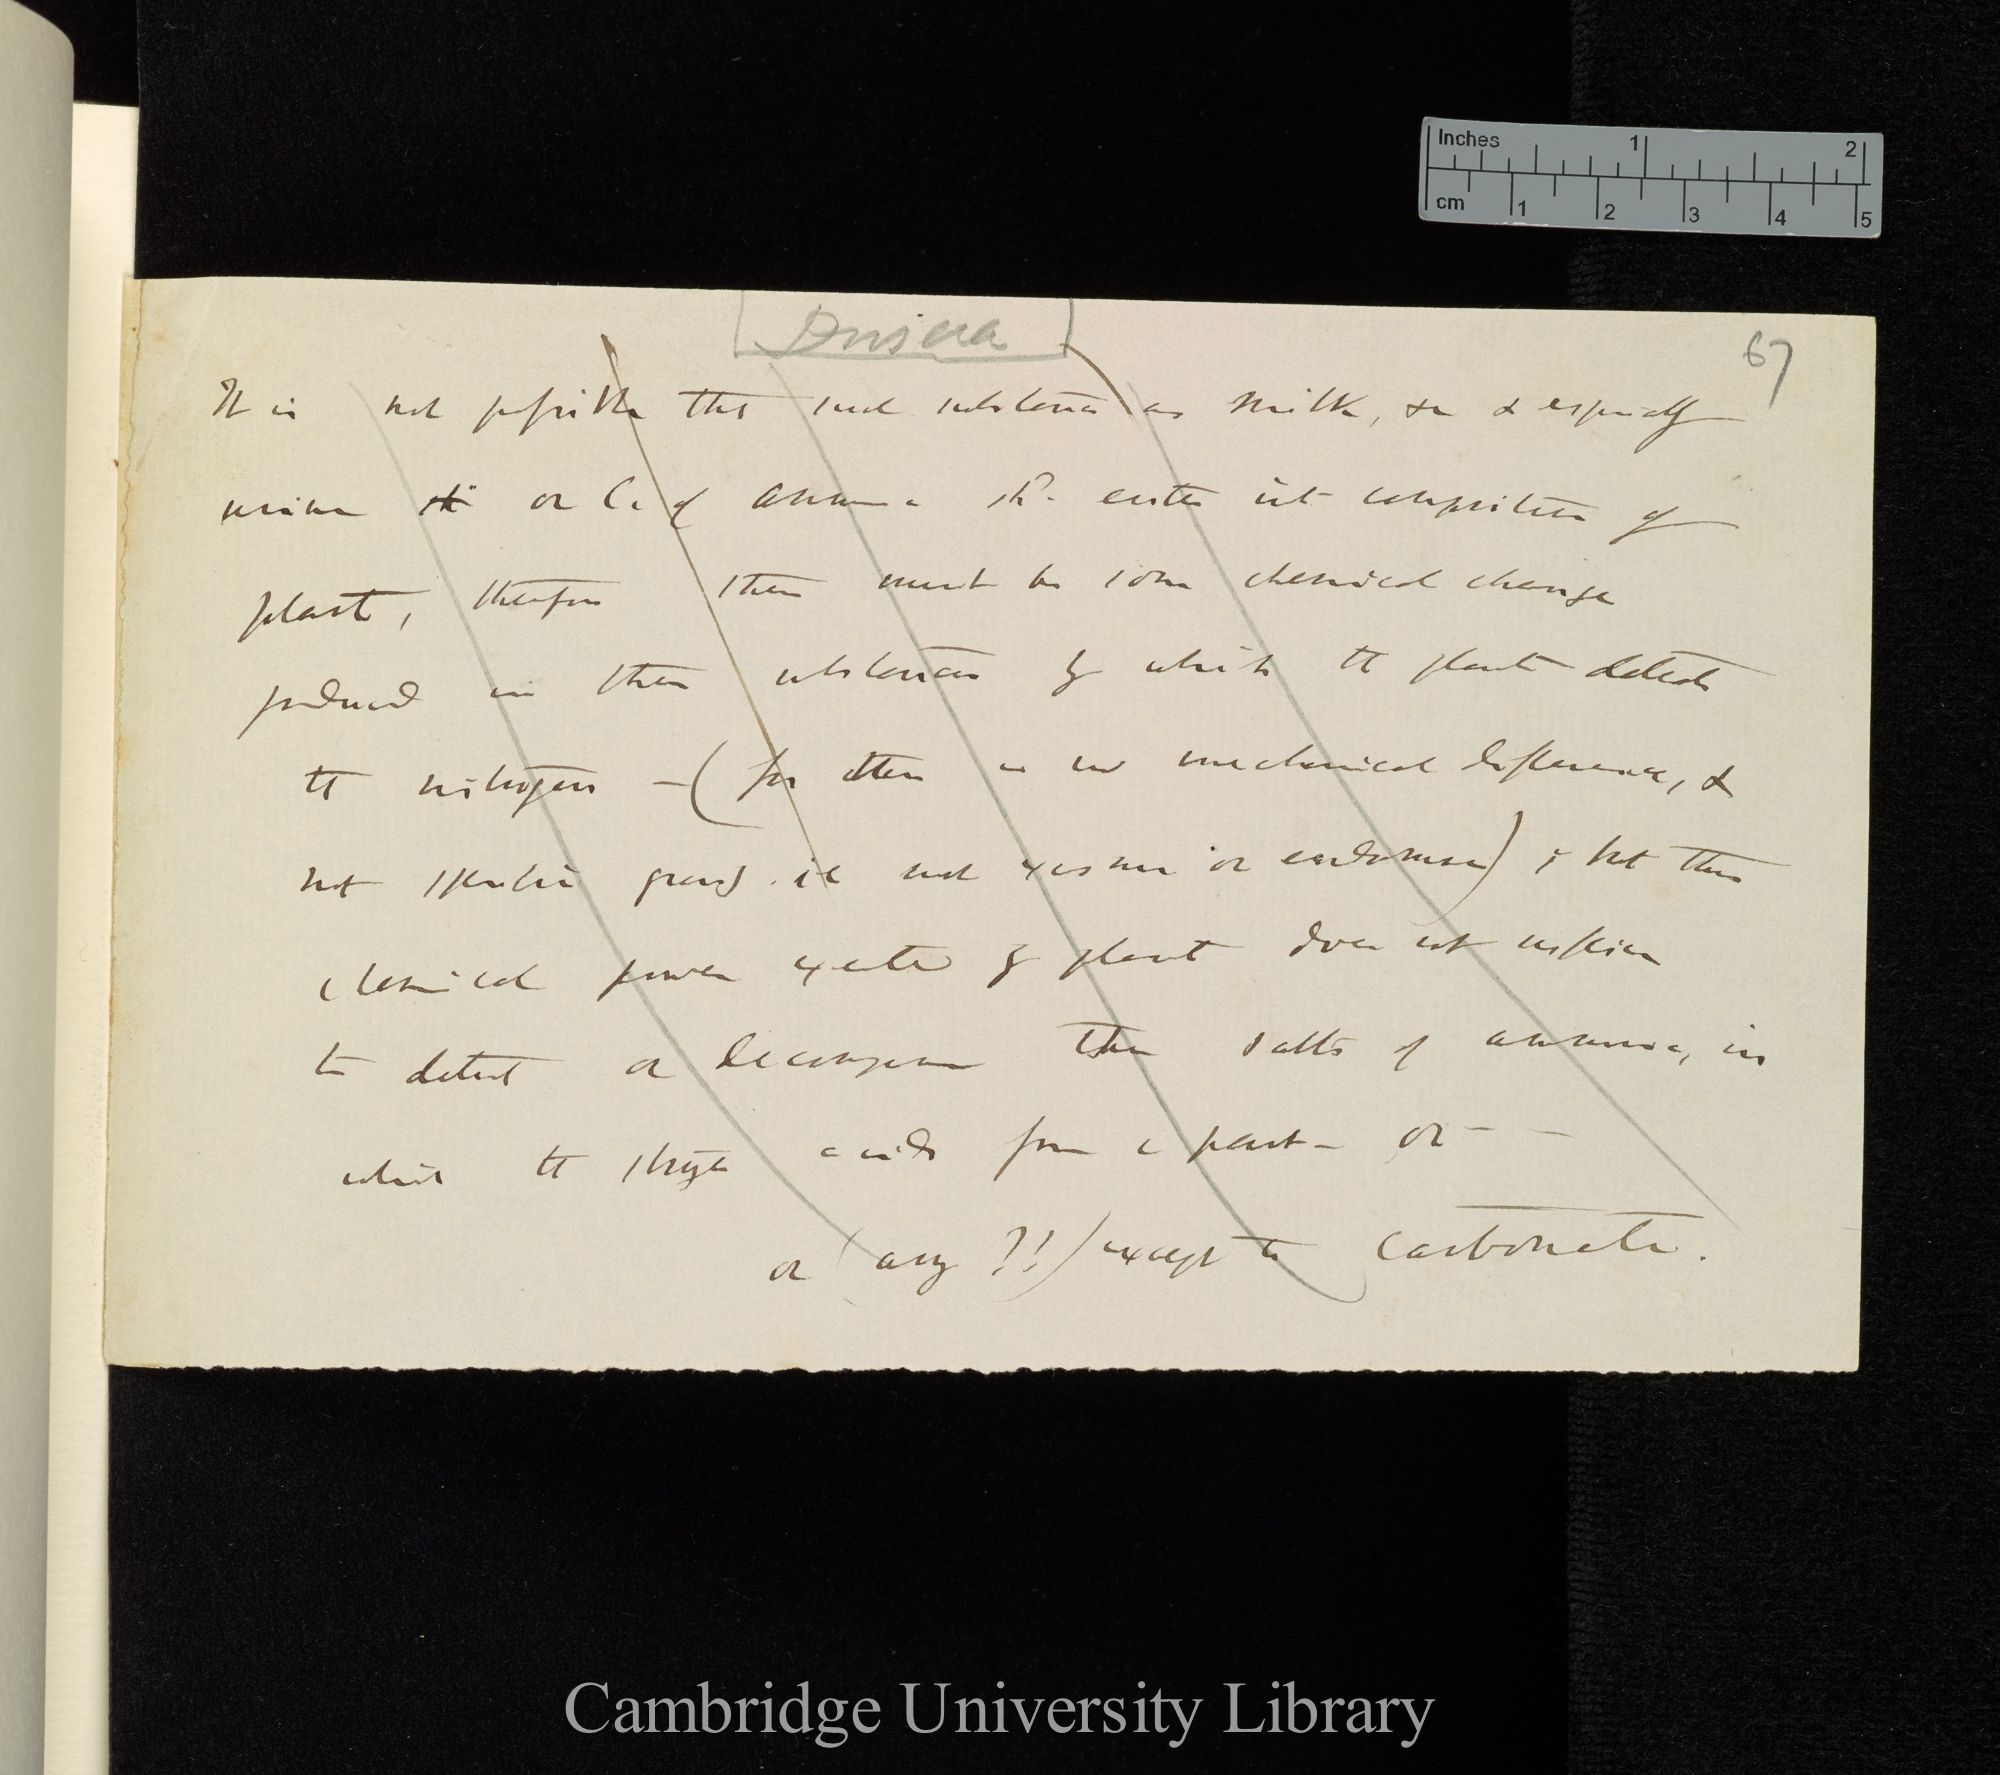 Drosera
67
It is not possible that such substances as milk, &c & especially
urine or C. of Ammonia shd. enter into composition of
plant, therefore there must be some chemical change
produced in these substances by which the plant detects
the nitrogen — (for there is no mechanical difference, &
not specific gravity. ie not exosmose or endosmose) ; but this
chemical power exerted by plant does not suffice
to detect or decompose the salts of ammonia, in
which the stronger acids form a part — or — —
or (any ?!) except the carbonate.
Inches 1 2
cm 1 2 3 4 5
Cambridge University Library